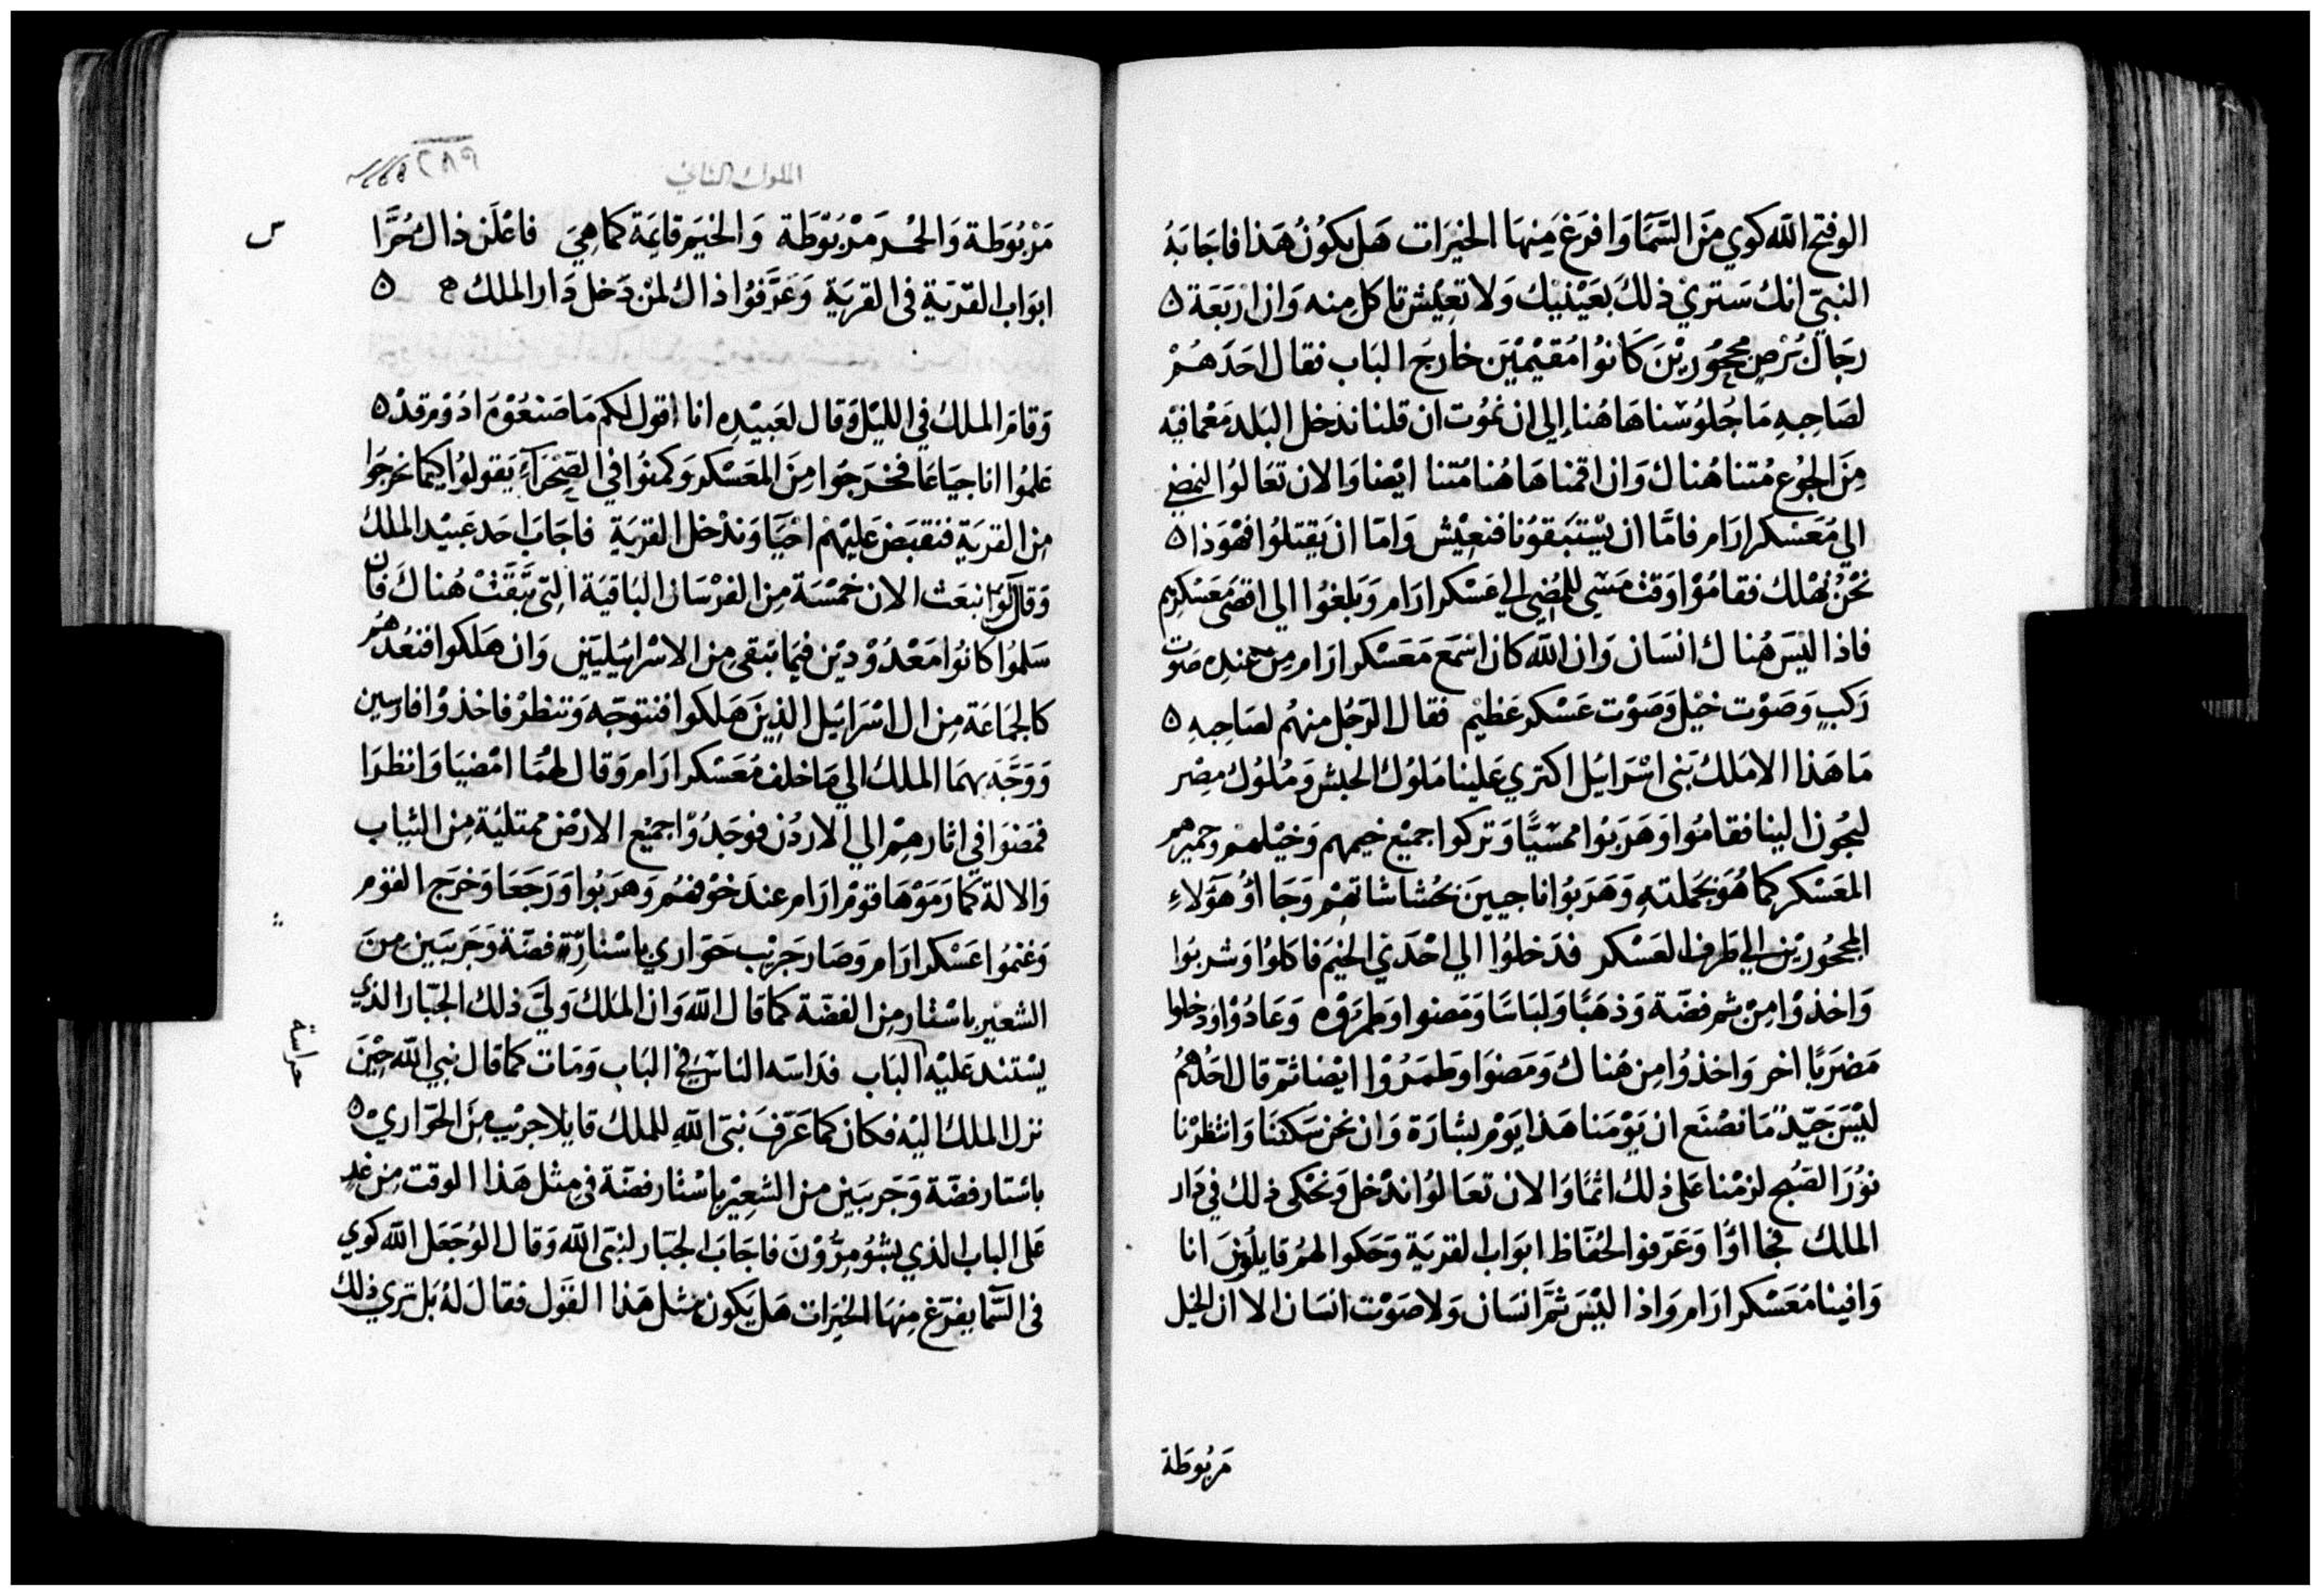 الوفتح الله كوي من السما وافرغ منها الخيرات هل يكون هذا فاجابه
النبي انك ستري ذلك بعينيك ولا تعيش تاكل منه وان اربعة ٥
رجال برص محجورين كانوا مقيمين خارج الباب فقال احدهم
لصاحبه ما جلوسنا هاهنا الي ان نموت ان قلنا ندخل البلد معما فيه
من الجوع متنا هناك وان اقمنا هاهنا متنا ايضا والان تعالوا لنمضي
الي معسكر ارام فاما ان يستبقونا فنعيش واما ان يقتلوا فهوذا ٥
نحن نهلك فقاموا وقت مسي للمضي الي عسكر ارام وبلغوا الي اقصي معسكرهم
فاذا ليس هناك انسان وان الله كان اسمع معسكر ارام من عنده صوت
ركب وصوت خيل وصوت عسكر عظيم فقال الرجل منهم لصاحبه ٥
ما هذا الا ملك بني اسرايل اكتري علينا ملوك الحبش وملوك مصر
ليجوز الينا فقاموا وهربوا ممسيا وتركوا جميع خيمهم وخيلهم وحميرهم
المعسكر كما هو بجملته وهربوا ناجيين بحشاشاتهم وجااوا هولاء
المحجورين الي طرف العسكر فدخلوا الي احدي الخيم فاكلوا وشربوا
واخذوا من ثم فضة وذهبا ولباسا ومضوا وطمروه وعادوا ودخلوا
مضربا اخر واخذوا من هناك ومضوا وطمروا ايضا ثم قال احدهم
ليس جيد ما نصنع ان يومنا هذا يوم بشارة وان نحن سكتنا وانتظرنا
نور الصبح لزمنا علي ذلك اثما والان تعالوا ندخل ونحكى ذلك في دار
الملك فجااوا وعرفوا الحفاظ ابواب القرية وحكوا لهم قايلين انا
وافينا معسكر ارام واذا ليس ثم انسان ولا صوت انسان الا ان الخيل
مربوطة
الملوك الثاني
مربوطة والحمر مربوطة والخيم قايمة كما هي فاعلن ذاك حرا
ابواب القرية في القرية وعرفوا ذاك لمن دخل دار الملك ٥
وقام الملك في الليل وقال لعبيده انا اقول لكم ما صنعوه ادوم قد ٥
علموا انا جياعا فخرجوا من المعسكر وكمنوا في الصحراء يقولوا كيما نخرجوا
من القرية فنقبض عليهم احيا وندخل القرية فاجاب احد عبيد الملك
وقال لو انبعث الان خمسة من الفرسان الباقية التي تبقت هناك فان
سلموا كانوا معدودين فيما تبقي من الاسرايليين وان هلكوا فنعدهم
كالجماعة من ال اسرايل الذين هلكوا فنتوجه وننظر فاخذوا فارسين
ووجه بهما الملك الي ما خلف معسكر ارام وقال لهما امضيا وانظرا
فمضوا في اثارهم الي الاردن فوجدوا جميع الارض ممتلية من الثياب
والالة كما رموها قوم ارام عند خوفهم وهربوا ورجعا وخرج القوم
وغنموا عسكر ارام وصار جريب حواري باستار فضة وجريبين من
الشعير باستار من الفضة كما قال الله وان الملك ولي ذلك الجبار الذي
يستند عليه الباب فداسه الناس في الباب ومات كما قال نبي الله حين
حراسة
نزل الملك اليه فكان كما عرف نبي الله للملك قايلا جريب من الحواري ٥
باستار فضة وجريبين من الشعير باستار فضة في مثل هذا الوقت من غد
على الباب الذي بشومرون فاجاب الجبار لنبي الله وقال الو جعل الله كوي
في السما يفرغ منها الخيرات هل يكون مثل هذا القول فقال له بل تري ذلك